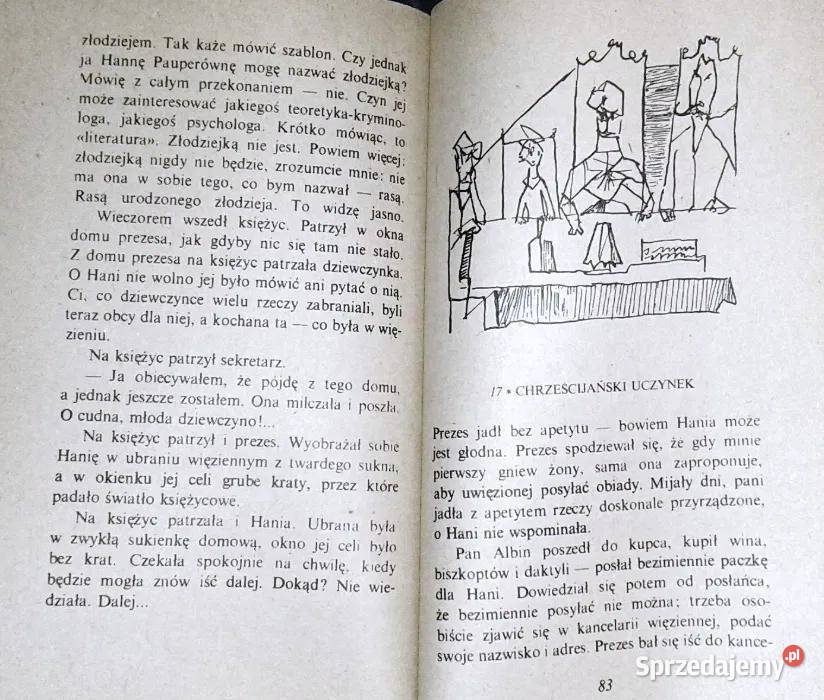 złodziejem. Tak każe mówić szablon. Czy jednak
ja Hannę Pauperównę mogę nazwać złodziejką?
Mówię z całym przekonaniem — nie. Czyn jej
może zainteresować jakiegoś teoretyka-krymino-
loga, jakiegoś psychologa. Krótko mówiąc, to
«literatura». Złodziejką nie jest. Powiem więcej:
złodziejką nigdy nie będzie, zrozumcie mnie: nie
ma ona w sobie tego, co bym nazwał — rasą.
Rasą urodzonego złodzieja. To widzę jasno.
Wieczorem wszedł księżyc. Patrzył w okna
domu prezesa, jak gdyby nic się tam nie stało.
Z domu prezesa na księżyc patrzała dziewczynka.
O Hani nie wolno jej było mówić ani pytać o nią.
Ci, co dziewczynce wielu rzeczy zabraniali, byli
teraz obcy dla niej, a kochana ta — co była w wię-
zieniu.
Na księżyc patrzył sekretarz.
— Ja obiecywałem, że pójdę z tego domu,
a jednak jeszcze zostałem. Ona milczała i poszła.
O cudna, młoda dziewczyno!...
Na księżyc patrzył i prezes. Wyobrażał sobie
Hanię w ubraniu więziennym z twardego sukna,
a w okienku jej celi grube kraty, przez które
padało światło księżycowe.
Na księżyc patrzała i Hania. Ubrana była
w zwykłą sukienkę domową, okno jej celi było
bez krat. Czekała spokojnie na chwilę, kiedy
będzie mogła znów iść dalej. Dokąd? Nie wie-
działa. Dalej...
17 • CHRZEŚCIJAŃSKI UCZYNEK
Prezes jadł bez apetytu — bowiem Hania może
jest głodna. Prezes spodziewał się, że gdy minie
pierwszy gniew żony, sama ona zaproponuje,
aby uwięzionej posyłać obiady. Mijały dni, pani
jadła z apetytem rzeczy doskonale przyrządzone,
o Hani nie wspominała.
Pan Albin poszedł do kupca, kupił wina,
biszkoptów i daktyli — posłał bezimiennie paczkę
dla Hani. Dowiedział się potem od posłańca,
że bezimiennie posyłać nie można; trzeba oso-
biście zjawić się w kancelarii więziennej, podać
swoje nazwisko i adres. Prezes bał się iść do kance-
83
Sprzedajemy.pl